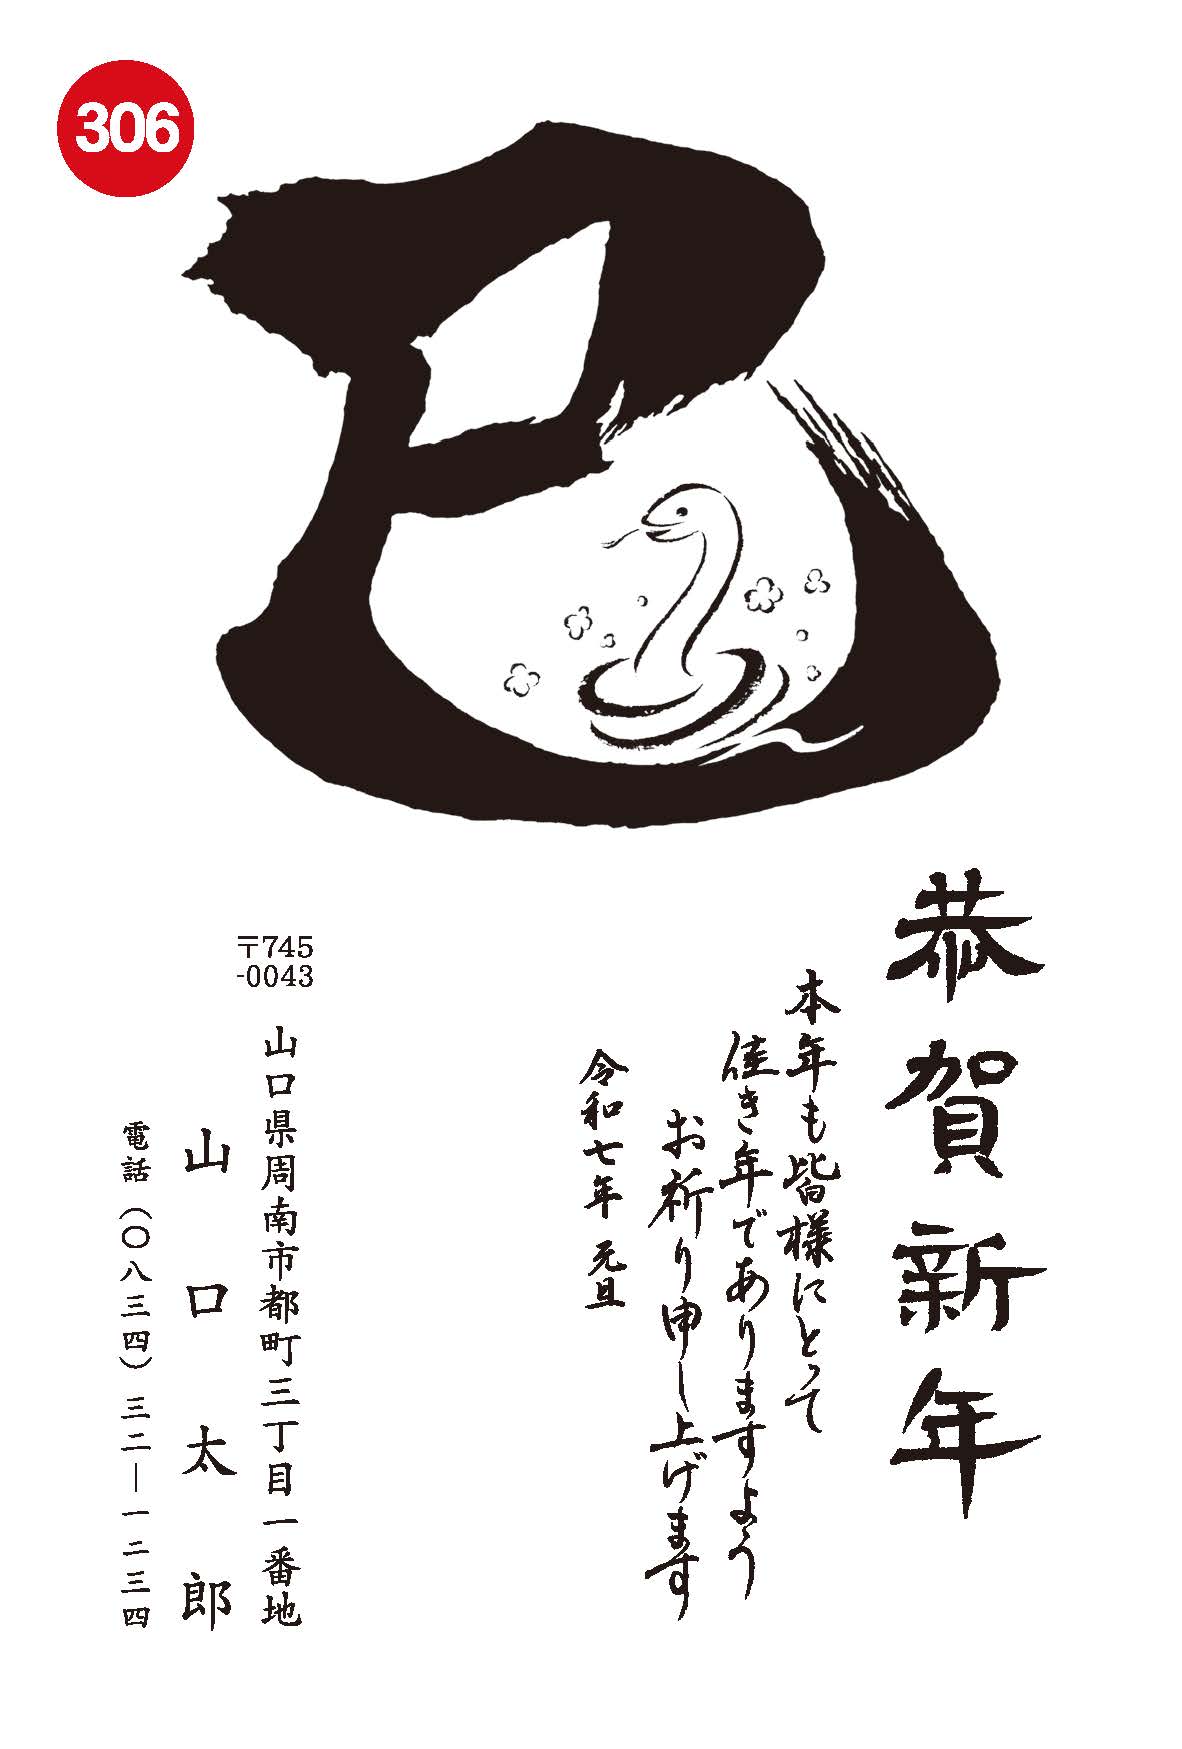 306
巳
恭賀新年
本年も皆様にとって
佳き年でありますよう
お祈り申し上げます
令和七年 元旦
〒745
-0043
山口県周南市都町三丁目一番地
山口太郎
電話(〇八三四)三二―一二三四